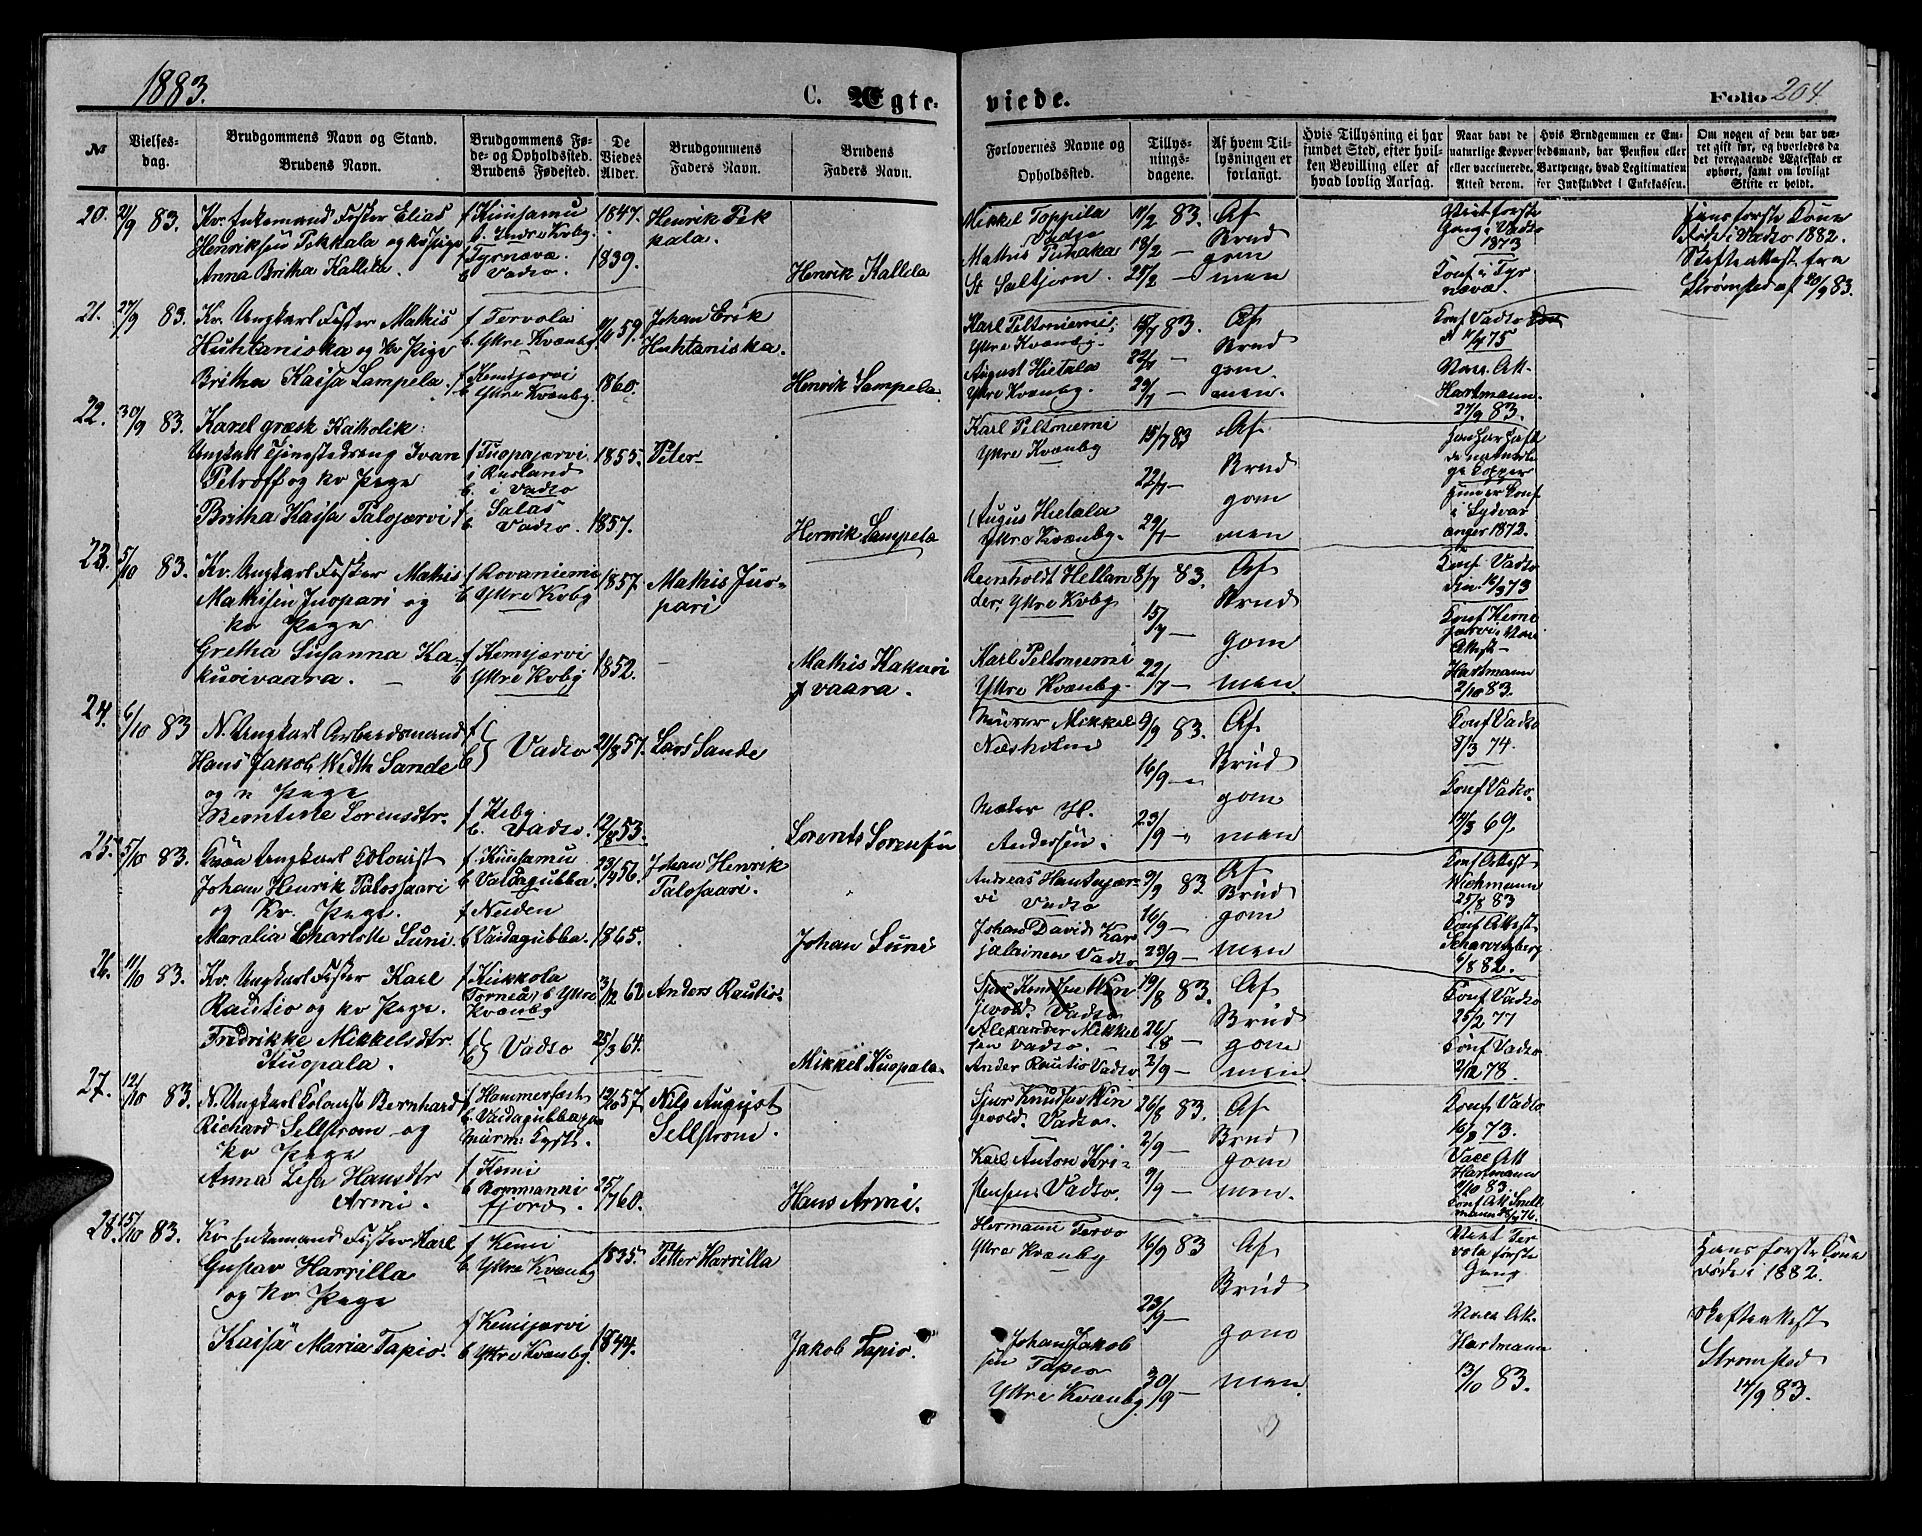 1883.
C. Ægte-
viede.
Folio 204.
№
Vielses-
dag.
Brudgommens Navn og Stand.
Brudens Navn.
Brudgommens Fø-
de- og Opholdssted.
Brudens Fødested.
De
Viedes
Alder.
Brudgommens
Faders Navn.
Brudens
Faders Navn.
Forlovernes Navne og
Opholdssted.
Tillys-
nings-
dagene.
Af hvem Til-
lysningen er
forlangt.
Hvis Tillysning ei har
fundet Sted, efter hvil-
ken Bevilling eller af
hvad lovlig Aarsag.
Naar havt de
naturlige Kopper
eller vaccinerede.
Attest derom.
Hvis Brudgommen er Em-
bedsmand, har Pension eller
Vartpenge, hvad Legitimation
for Indskuddet i Enkekassen.
Om nogen af dem har væ-
ret gift før, og hvorledes da
det foregaaende Ægteskab er
ophørt, samt om lovligt
Skifte er holdt.
20. 21/9 83. Kv. Enkemand Fisker Elias
Henriksen Pekkala og kv Pige
Anna Britha Kallela.
f Kuusamu
b. Indre Kvbg.
f Tyrnævæ.
b Vadsø.
1847.
1839.
Henrik Pek
kala.
Henrik Kallela
Mikkel Toppila
Vadsø
Mathis Puhaka
St Saltjern
11/2 83.
18/2 —
25/2 —
Af
Brud
gom
men
Viet første
Gang i Vadsø
1873
Conf i Tyr
nævæ.
Hans første Kone
døde i Vadsø 1882.
Skifteattest fra
Strømsted af 20/9 83.
21. 27/9 83. Kv. Ungkarl Fisker Mathis
Huhtaniska og kv Pige
Britha Kaisa Lampela.
f Tervola
b Ytre Kvænbg.
f Kemijærvi
b Ytre Kvænbg.
59.
1860.
Johan Erik
Huhtaniska.
Henrik Lampela.
Karl Peltoniemi,
Ytre Kvænbg.
August Hietala
Ytre Kvænbg.
15/7 83.
22/7 —
29/7 —
Af
Brud
gom
men.
Conf Vadsø
75
Vacc. Att.
Hartmann.
27/9 83.
22. 30/9 83. Karel græsk Katholik:
Ungkarl Tjenestedreng Ivan
Petroff og kv Pige
Britha Kaisa Palojærvi
f Tuopajærvi
i Rusland
b. i Vadsø
f. Salas
b Vadsø.
1855.
1857.
Peter
Henrik Lampela
Karl Peltoniemi
Ytre Kvænbg
Augus Hietala
Ytre Kvænbg.
15/7 83
22/7 —
29/7 —
Af
Brud
gom
men
Han har haft
de naturli
ge Kopper
Hun er Conf
i Sydvar
anger 1872.
23. 5/10 83. Kv. Ungkarl Fisker Mathis
Mathisen Juopari og
kv Pige
Gretha Susanna Ka-
kurivaara.
f Rovaniemi
b Ytre Kvbg
f Kemijærvi
b Ytre Kvbg
1857.
1852.
Mathis Juo-
pari
Mathis Kakuri
vaara.
Reinholdt Hellan
der, Ytre Kvbg
Karl Peltoniemi
Ytre Kvænbg.
8/7 83.
15/7 —
22/7 —
Af
Brud
gom
men
Conf Vadsø
73
Conf Kemi
jærvi. Vac
Attest
Hartmann
2/10 83.
24. 6/10 83 N. Ungkarl Arbeidsmand
Hans Jakob Wedth Sande
og n Pige
Berntine Lorensdtr.
f
b } Vadsø
f Kiby
b. Vadsø.
21/8 57.
12/8 53.
Lars Sande
Lorents Sorensen
Murer Mikkel
Næsholm
Maler H.
Andersen.
9/9 83.
16/9 —
23/9 "
Af
Brud
gom
men
Conf Vadsø
8/3 74.
Conf Vadsø.
69.
25. 5/10 83. Qvæn Ungkarl Colonist
Johan Henrik Palosaari
og Kv. Pige.
Maralia Charlotte Suni.
f. Kuusamu
b Vaidagubba.
f Neiden
b Vaidagubba.
56.
1865.
Johan Henrik
Palosaari.
Johan Suni
Andreas Hantajær-
vi Vadsø
Johan David Kar
jalainen Vadsø
9/9 83
16/9 —
23/9 —
Af
Brud
gom
men
Conf. Attest
Wichmann
25/8 83
Conf Attest
82.
26. 11/10 83. Kv. Ungkarl Fisker Karl
Rautio og kv Pige.
Fredrikke Mikkelsdtr
Kuopala.
f Kukkola
Torneå, b Ytre
Kvænbg
f
b } Vadsø
3/12 62
25/3 64.
Anders Rautio.
Mikkel Kuopala.
Sjur Knudsen Win
jevold. Vadsø
Alexander Mikkel
sen Vadsø.
Ander Rautio Vadsø
19/8 83.
26/8 —
2/9 —
Af
Brud
gom
men
Conf Vadsø
25/2 77
Conf Vadsø
2/12 78.
27. 12/10 83. N. Ungkarl Colonist Bernhard
Richard Sellstrøm og
kv Pige
Anna Lisa Hansdtr
Armi.
f Hammerfest
b. Vaidagubba pa
Murm. Kyst.
f Kemi
b Bommanni
fjord.
57
25/7 60.
Nils August
Sellstrom.
Hans Armi.
Sjur Knudsen Win
jevold. Vadsø.
Karl Anton Kri-
stensen, Vadsø.
26/8 83.
2/9 —
9/9 —
Af
Brud
gom
men.
Conf. Vadsø
73.
Vacc Att
Hartmann
9/10 83.
Conf. Att. Snell
mann 76.
28. 15/10 83. Kv Enkemand Fisker Karl
Gustav Harrilla
og kv Pige
Kaisa Maria Tapio.
f Kemi
b Ytre Kvænbg
f Kemijærvi
b Ytre Kvænbg.
1835.
1844.
Petter Harrilla
Jakob Tapio.
Hermann Tervo
Ytre Kvænbg
Johan Jakob
sen Tapio
Ytre Kvænbg.
16/9 83
23/9 —
30/9 —
Af
Brud
gom
men.
Viet Ter
vola første
Gang
Vacc Att.
Hartmann
13/10 83.
Hans første Kone
døde i 1882.
Skifteattest
Strømsted
14/9 83.